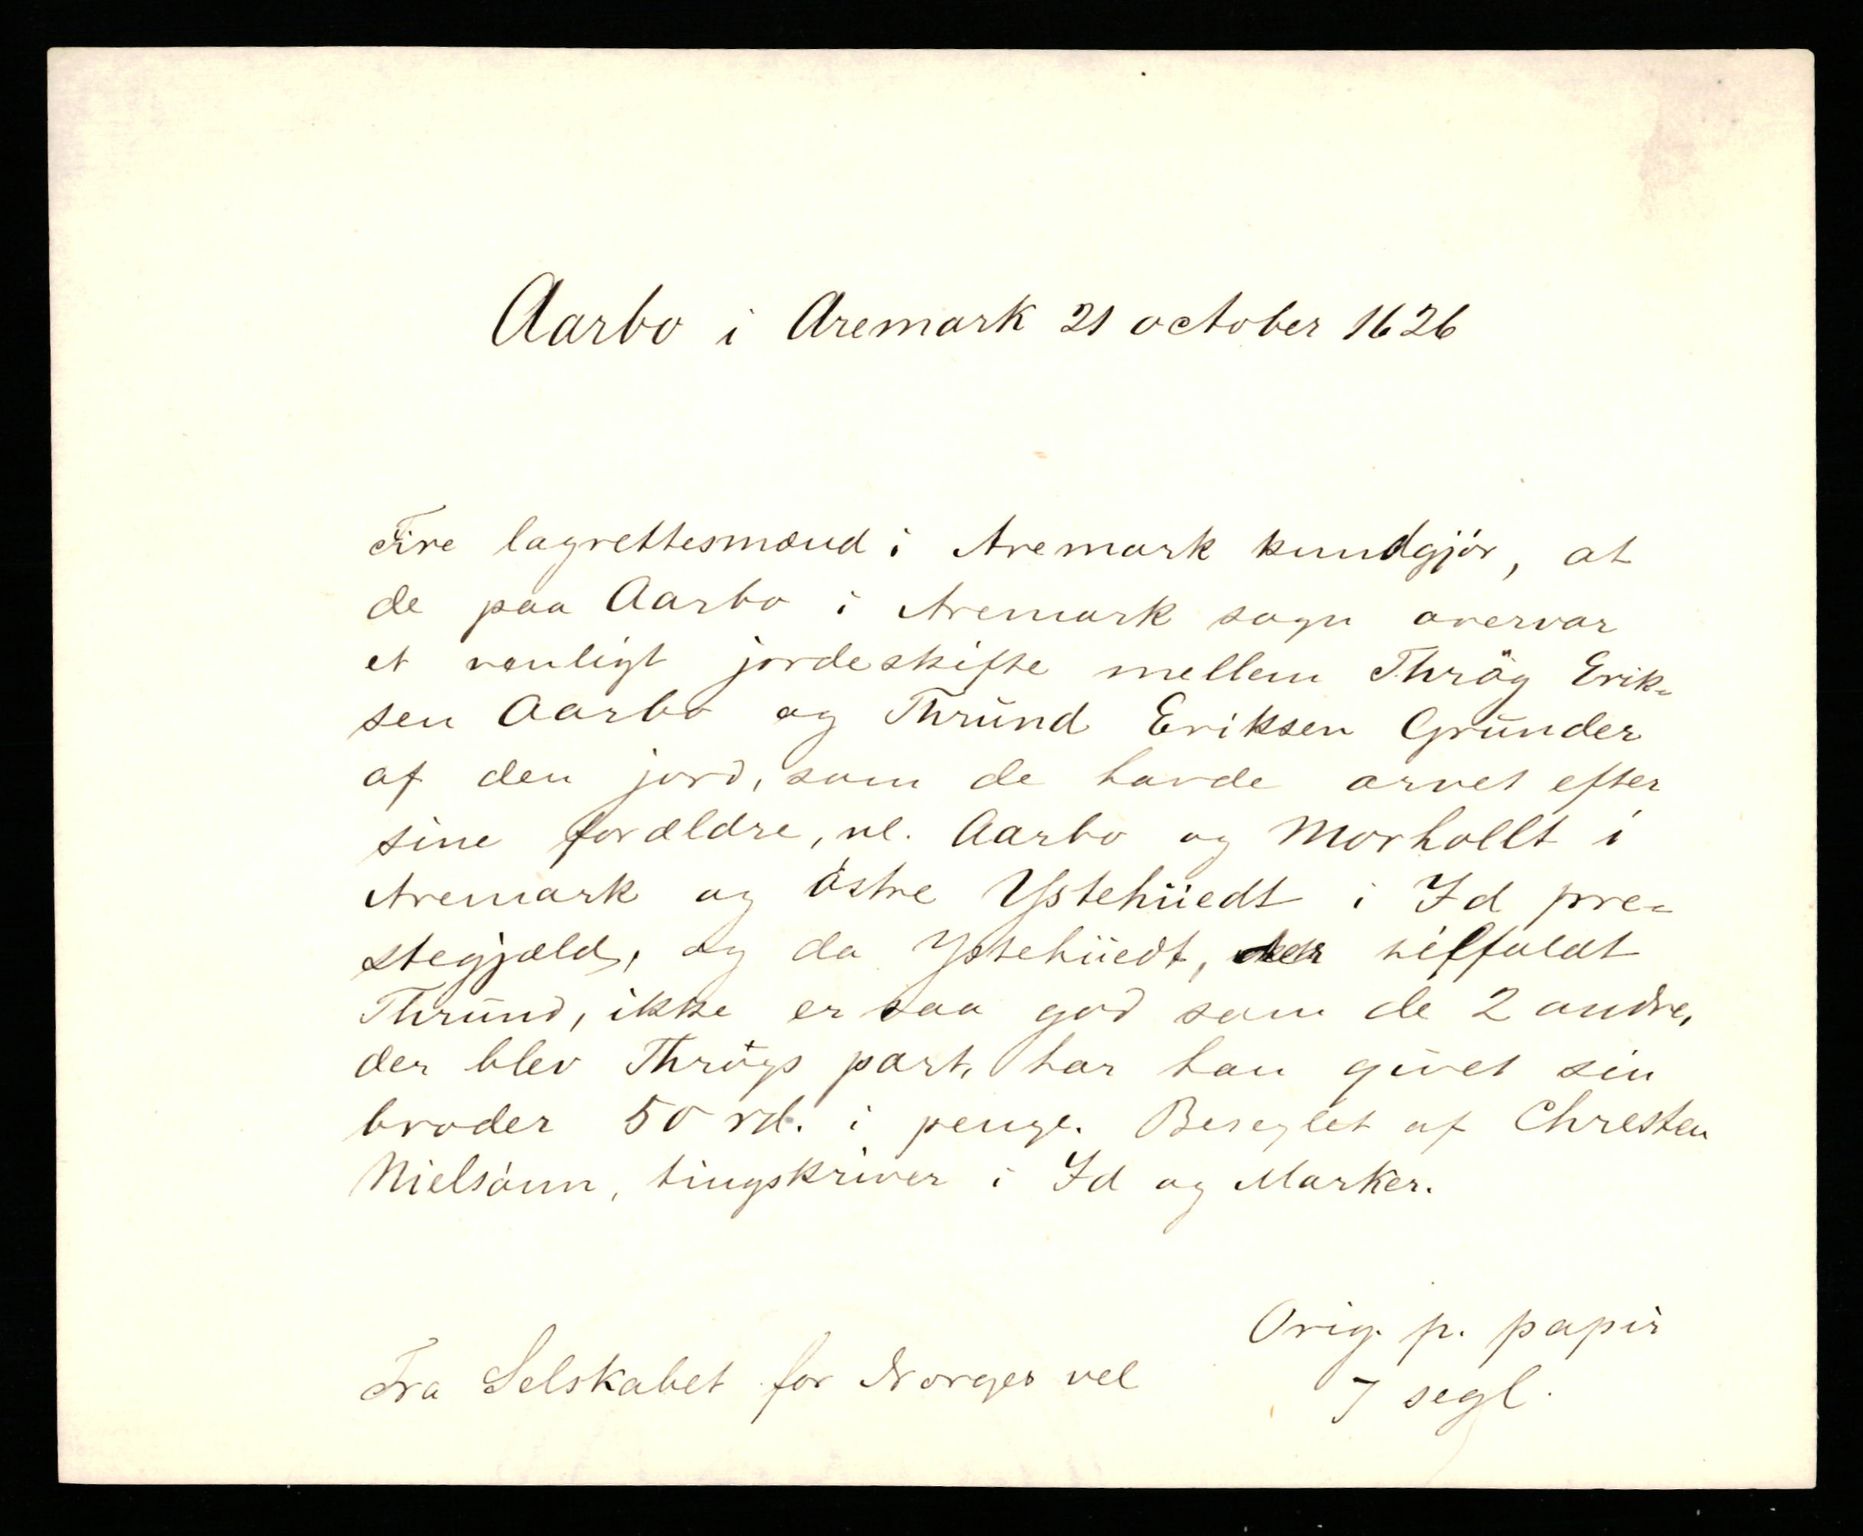 Aarbo i Aremark 21 october 1626
Fire lagrettesmænd i Aremark kundgjör, at
de paa Aarbo i Aremark sogn overvar
et venligt jordeskifte mellem Thrög Erik-
sen Aarbo og Thrund Eriksen Grunder
af den jord, som de havde arvet efter
sine forældre, nl. Aarbo og Morhollt i
Aremark og östre Ystehüedt i Id pre-
stegjæld, og da Ystehüedt, der tilfaldt
Thrund, ikke er saa god som de 2 andre,
der blev Thrögs part, har han givet sin
broder 50 rd. i penge. Beseglet af Christen
Nielsönn, tingskriver i Id og Marker.
Orig. p. papir
Fra Selskabet for Norges vel
7 segl.